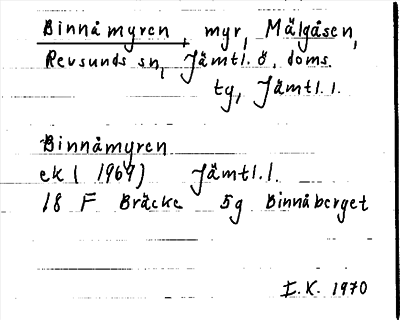 Binnåmyren, myr, Mälgåsen,
Revsunds sn, Jämtl. ö. doms.
tg, Jämtl. l.
Binnåmyren
ek (1969) Jämtl. l.
18 F Bräcke 5g Binnåberget
I. K. 1970